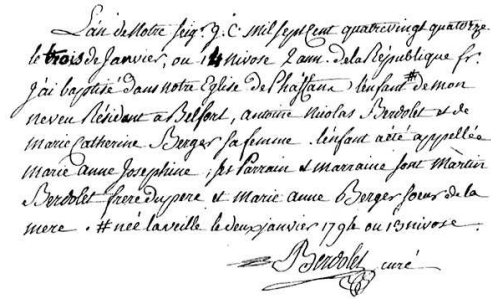 L'an de Notre Seig. J. C. mil sept cent quatre vingt quatorze
le trois de Janvier, ou 14 nivose 2 ann. de la République fr.
J'ai baptisé dans notre Eglise de Phaffans l'enfant # de mon
neveu Résident a Belfort, antoine Nicolas Berdolet et de
marie Catherine Berger sa femme. l'enfant a été appellée
marie anne Josephine ; ses Parrain et marraine sont Martin
Berdolet frere du pere et marie anne Berger soeur de la
mere . # née la veille le deux janvier 1794 ou 13 nivose.
Berdolet curé